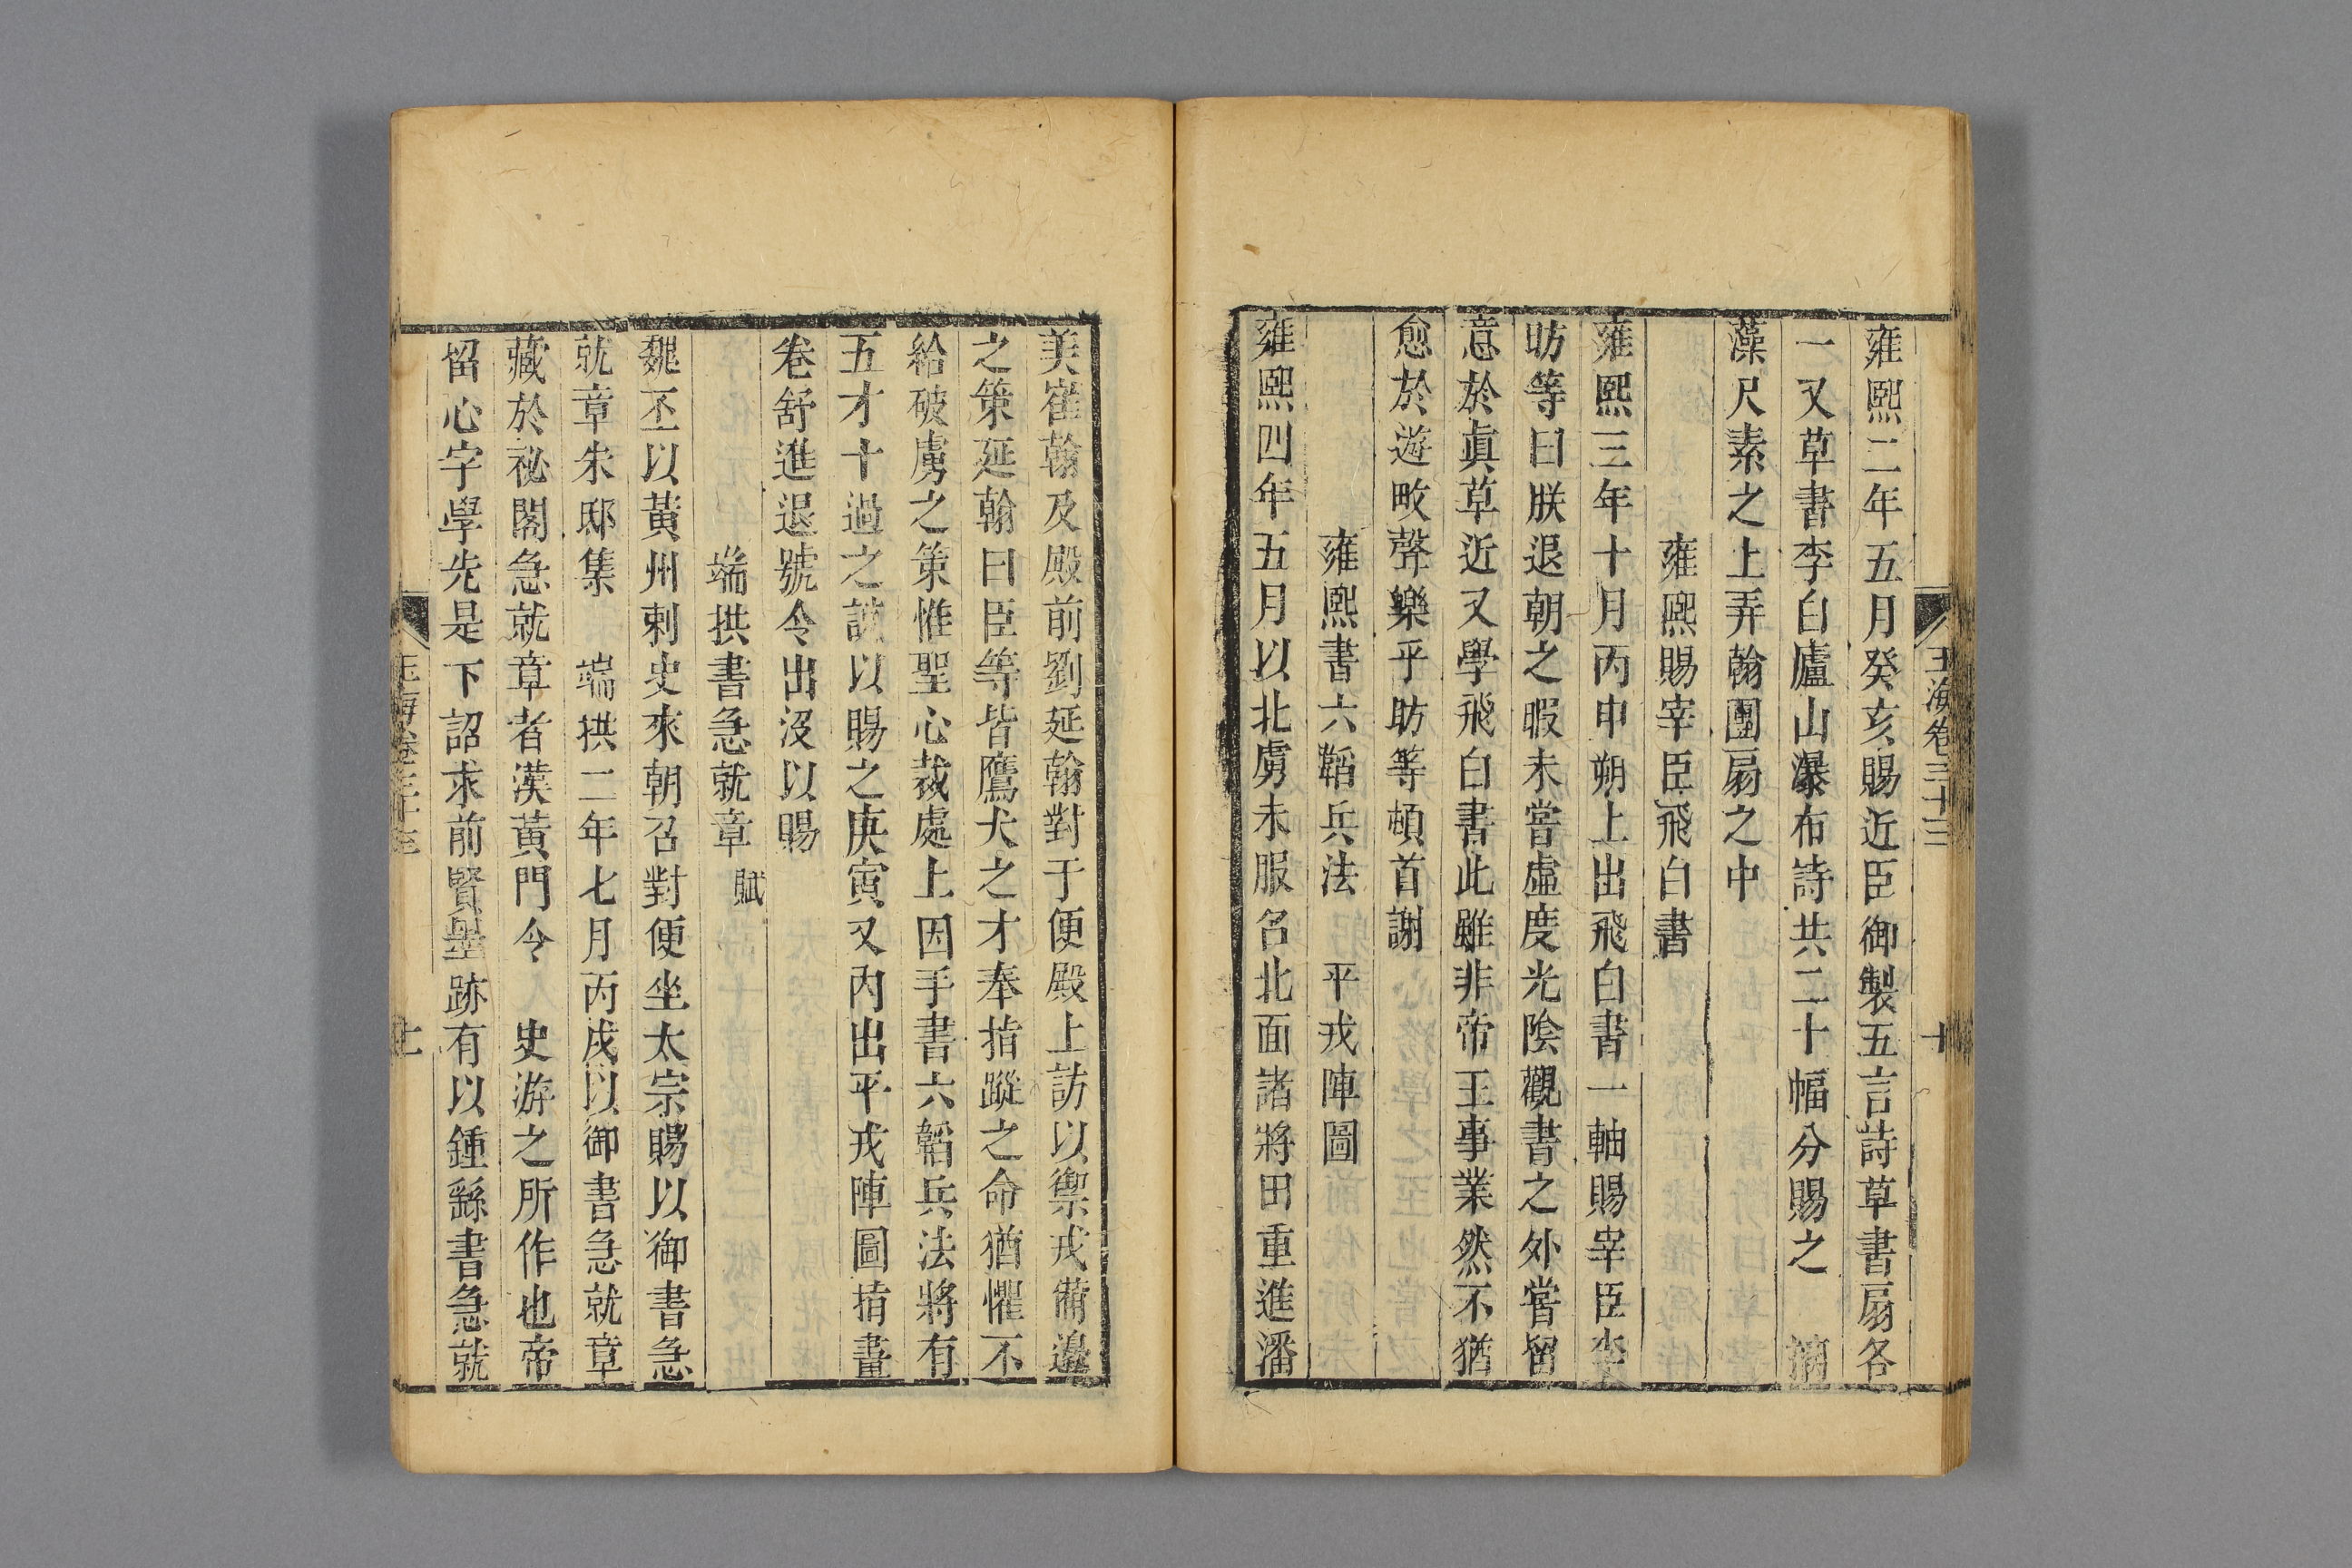 玉海卷三十三
十
雍熙二年五月癸亥賜近臣御製五言詩草書扇各
一又草書李白廬山瀑布詩共二十幅分賜之　摛
藻尺素之上弄翰團扇之中
雍熙賜宰臣飛白書
雍熙三年十月丙申朔上出飛白書一軸賜宰臣李
昉等曰朕退朝之暇未嘗虛度光陰觀書之外嘗留
意於眞草近又學飛白書此雖非帝王事業然不猶
愈於遊畋聲樂乎昉等頓首謝
雍熙書六韜兵法　平戎陣圖
雍熙四年五月以北虜未服名北面諸將田重進潘
美崔翰及殿前劉延翰對于便殿上訪以禦戎備邊
之策延翰曰臣等皆鷹犬之才奉指蹤之命猶懼不
給破虜之策惟聖心裁處上因手書六韜兵法將有
五才十過之說以賜之庚寅又內出平戎陣圖指畫
卷舒進退號令出沒以賜
端拱書急就章　賦
魏丕以黃州刺史來朝召對便坐太宗賜以御書急
就章朱邸集　端拱二年七月丙戌以御書急就章
藏於祕閣急就章者漢黃門令　史游之所作也帝
留心字學先是下詔求前賢墨跡有以鍾繇書急就
玉海卷三十三
十一